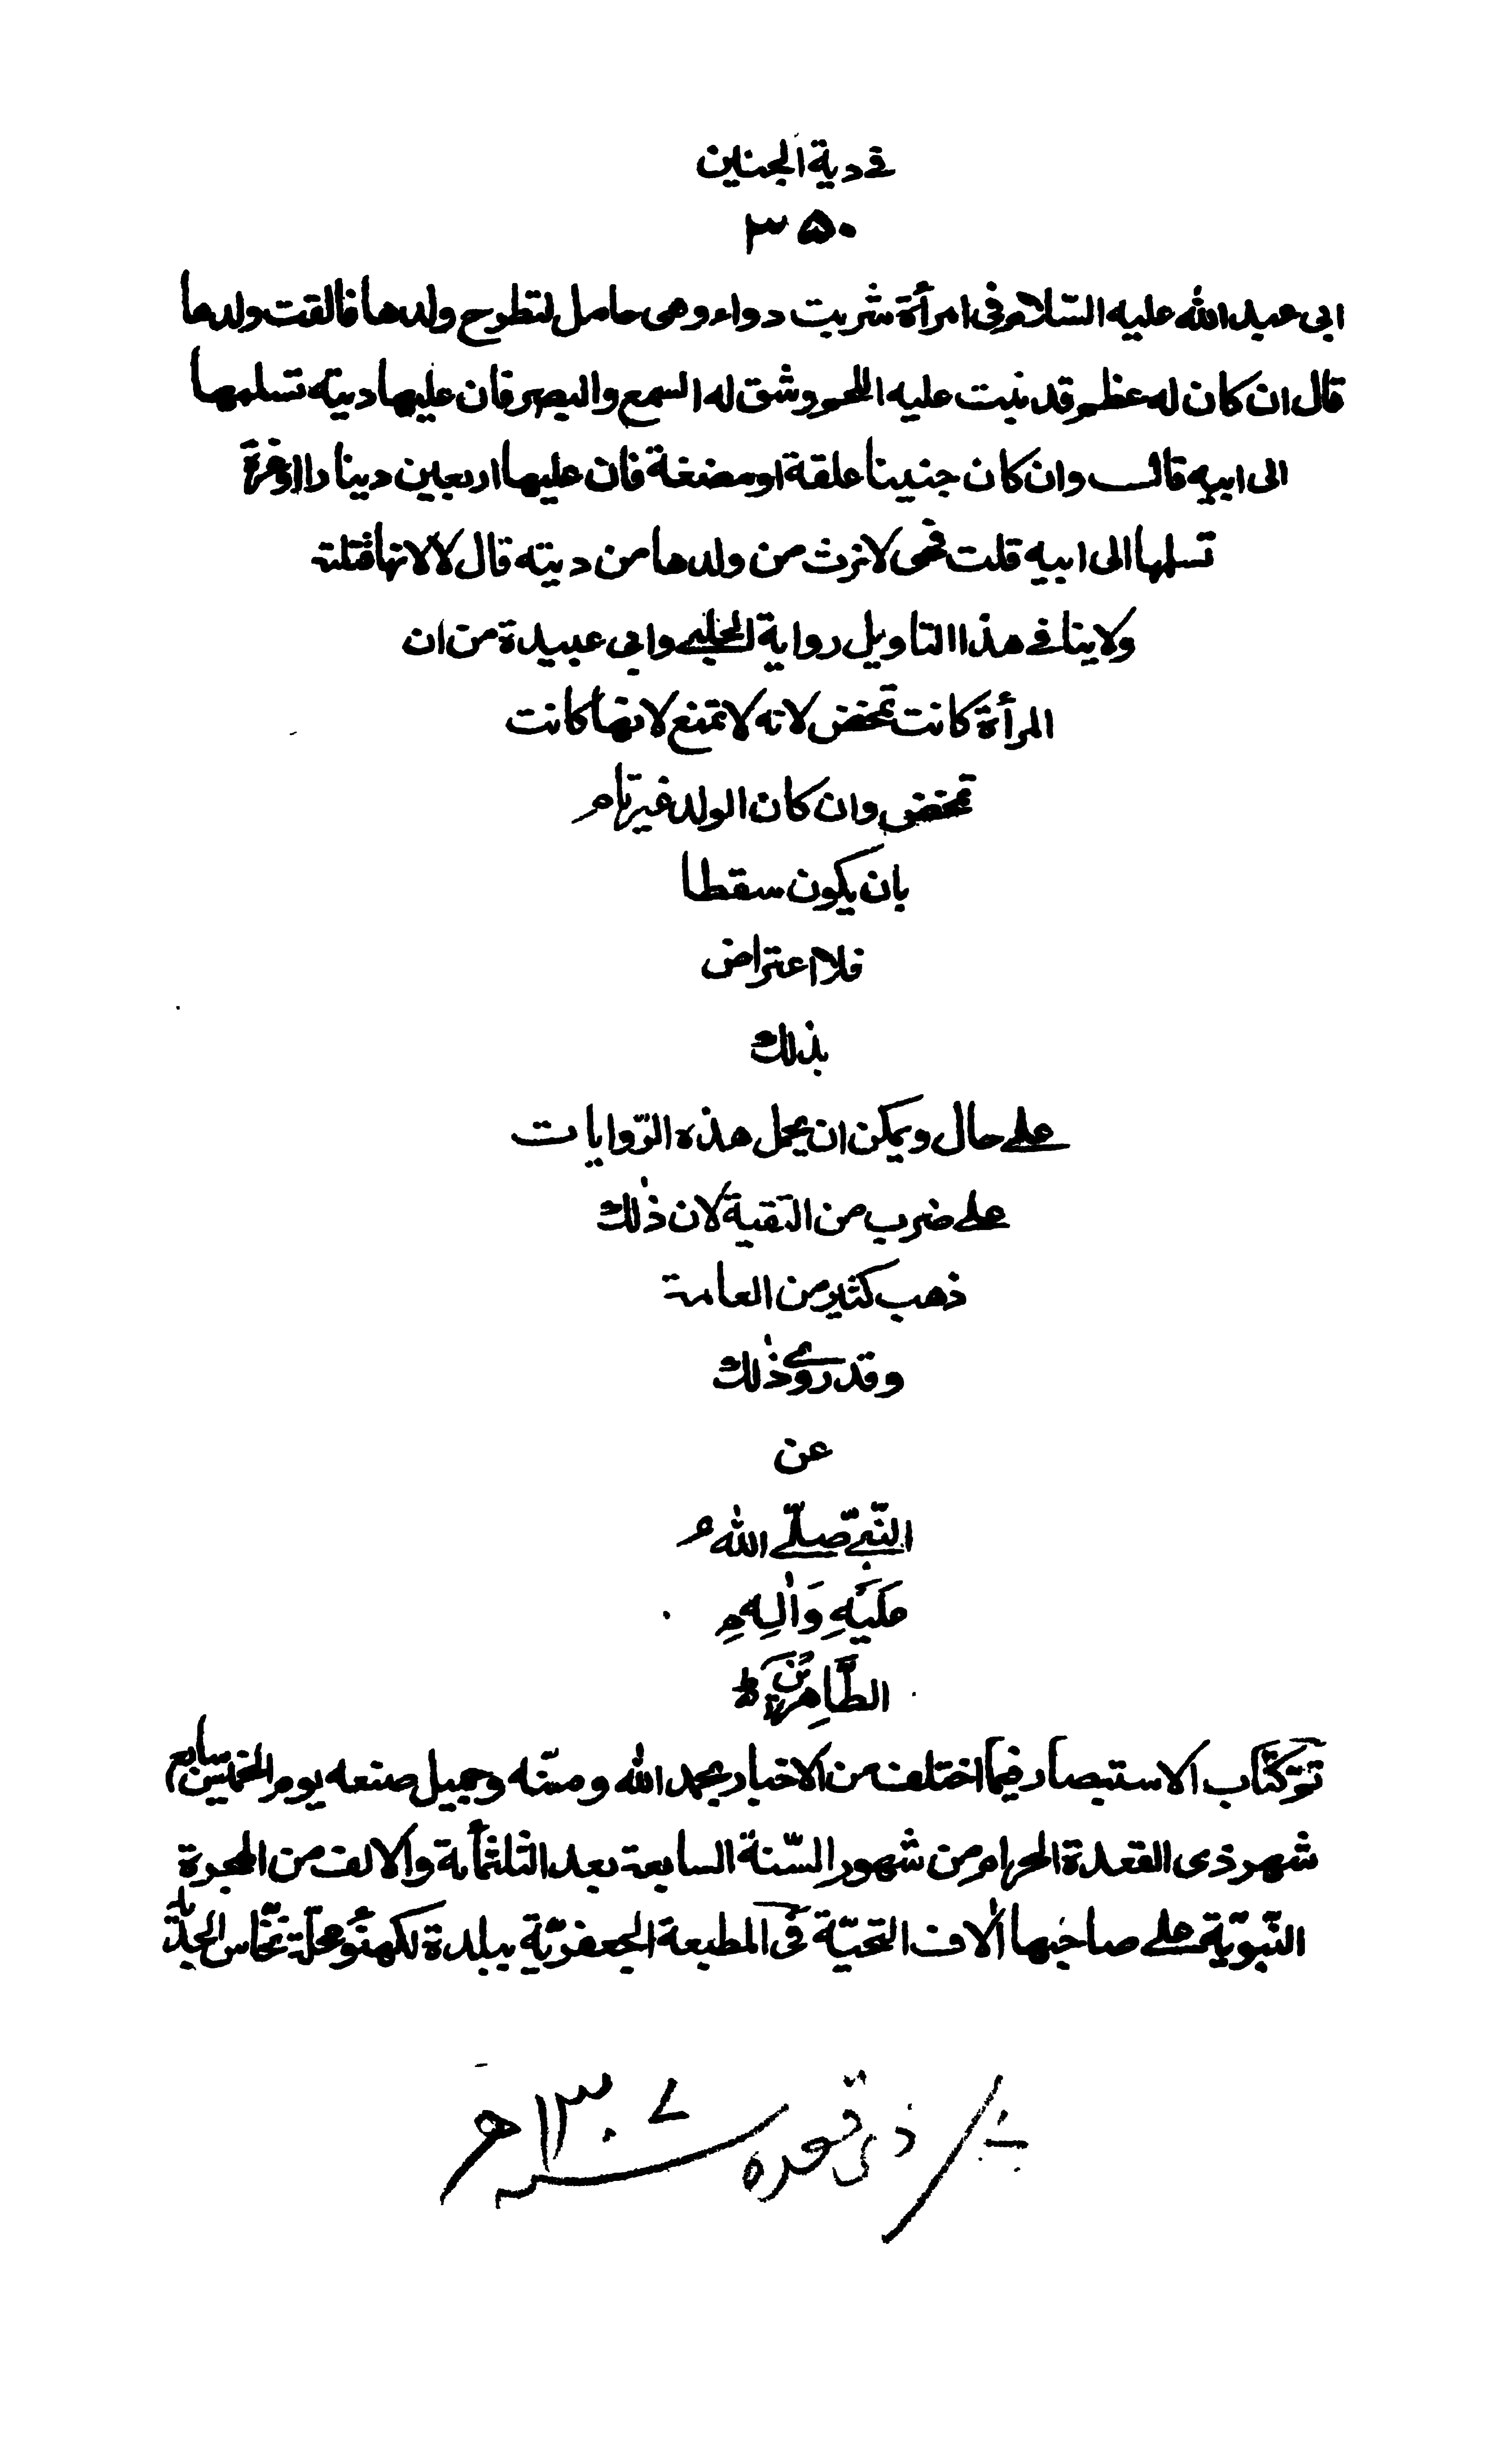 فے دية الجنين
۳۵۰
ابى عبد الله عليه السّلام فى امرأة شربت دواء وهى حامل لتطرح ولدها فالقت ولدها
قال ان كان له عظم قد نبت عليه اللحم وشق له السمع والبصر فان عليها ديته تسلمها
الى ابيه قال وان كان جنينا علقة او مضغة فان عليها اربعين دينارا او غرة
تسلمها الى ابيه قلت فهى لا ترث من ولدها من ديته قال لا لانها قتلته
ولا ينافے هذا التاويل رواية الحلبے وابى عبيدة من ان
المرأة كانت تمخض لانه لا تمنع لانها كانت
تمخض وان كان الولد غير تام
بان يكون سقطا
فلا اعتراض
بذلك
علے حال ويمكن ان يحمل هذه الرّوايات
علے ضرب من التقية لان ذلك
ذهب كثير من العامة
وقد روے ذلك
عن
النّبے صلّے الله
عَلَيْهِ وَاٰلِهِ
الطَّاهِرِيْنَ
تم كتاب الاستبصار فيما اختلف من الاخبار بحمد الله ومنّه وجميل صنعه يوم الخميس سابع
شهر ذى القعدة الحرام من شهور السّنة السابعة بعد الثلثمأية والالف من الهجرة
النّبويّة علے صاحبها اٰلاف التحيّة فى المطبعة الجعفريّة ببلدة لكهنؤ محلّة نخّاس الجد
ذى قعده ۱۳۰۷ ھ